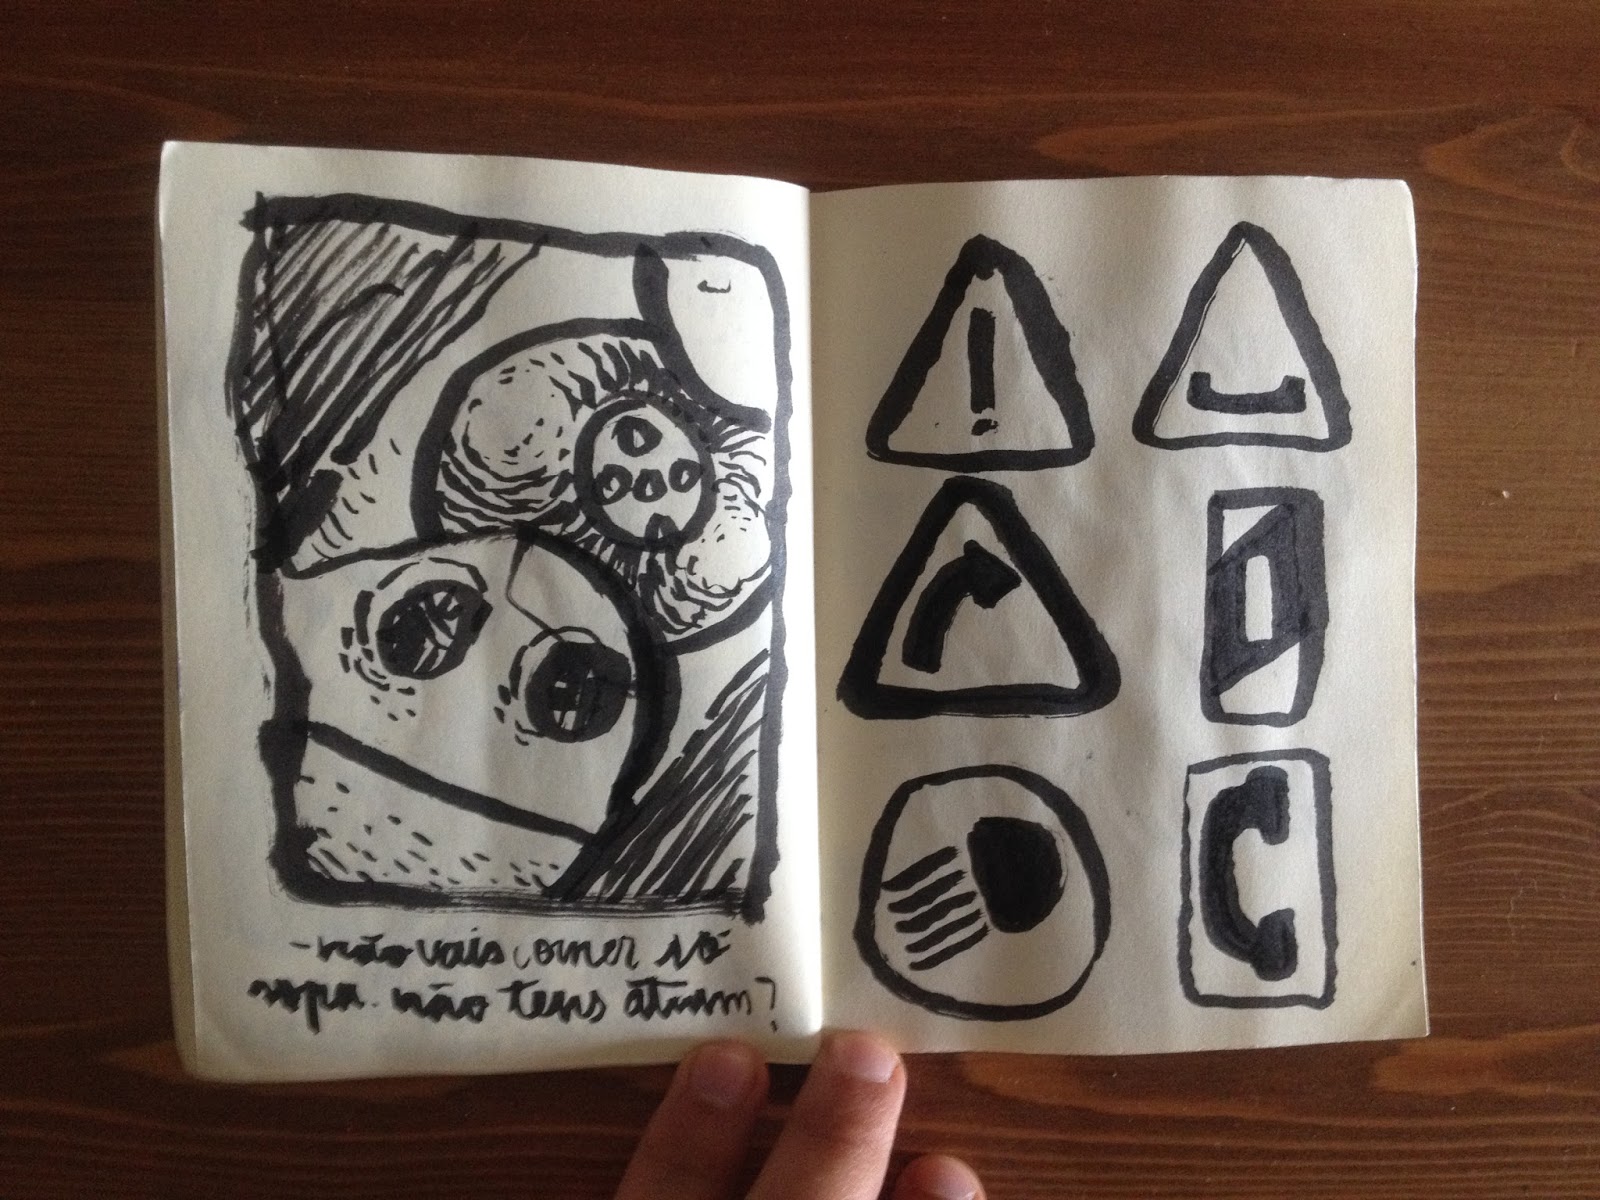 - não vais comer só
sopa. não tens atum?